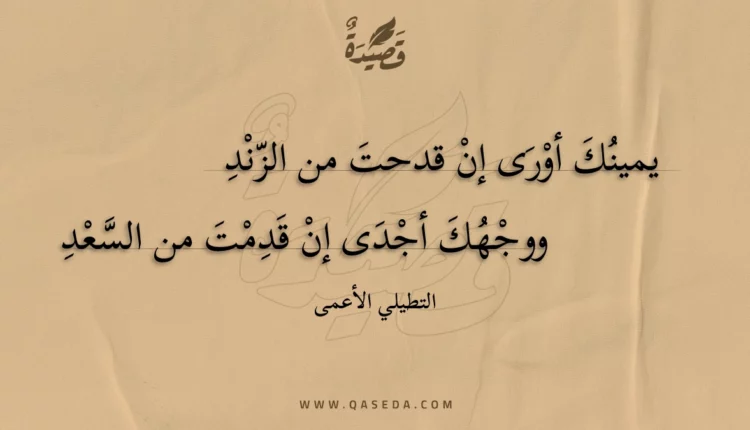 قَصِيدَةٌ
يمينُكَ أوْرَى إنْ قدحتَ من الزّنْدِ
ووجْهُكَ أجْدَى إنْ قَدِمْتَ من السَّعْدِ
التطيلي الأعمى
WWW.QASEDA.COM